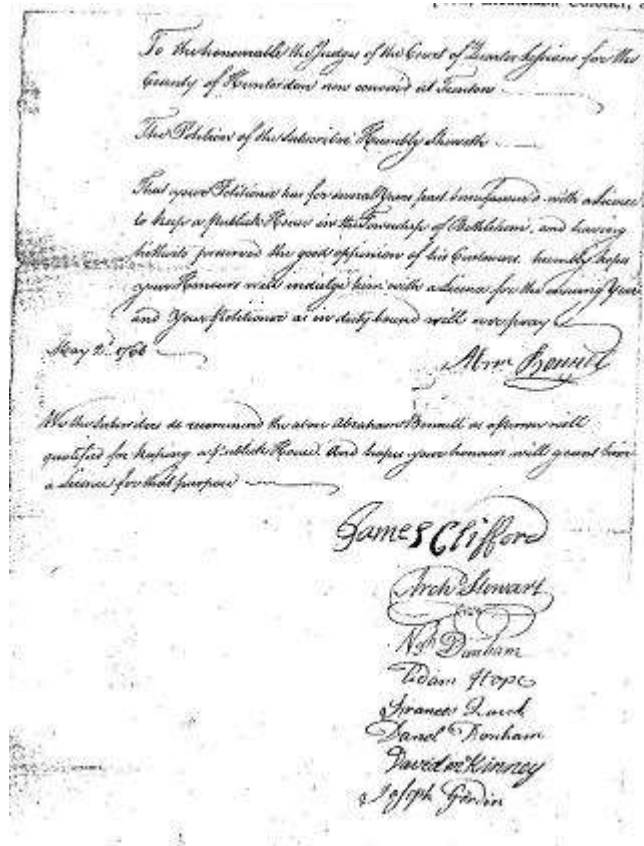 Lieutenant Colonel,
To the honourable the Judges of the Court of Quarter Sessions for the
County of Hunterdon now convened at Trenton
The Petition of the Subscriber Humbly Sheweth
That your Petitioner has for several Years past been favoured with a License
to keep a Publick House in the Township of Bethlehem, and having
hitherto preserved the good oppinion of his Customers, humbly hopes
your Honours will indulge him with a License for the ensuing Year
and your Petitioner as in duty bound will ever pray
May 2d. 1766
Abm Bonnell
We the Subscribers do recommend the above Abraham Bonnell as a person well
qualified for keeping a Publick House, And hopes your honours will grant him
a License for that purpose
James Clifford
Archd Stewart
Nehh Dunham
Adam Hope
Daniel Dunham
David McKinney
Joseph Gordin